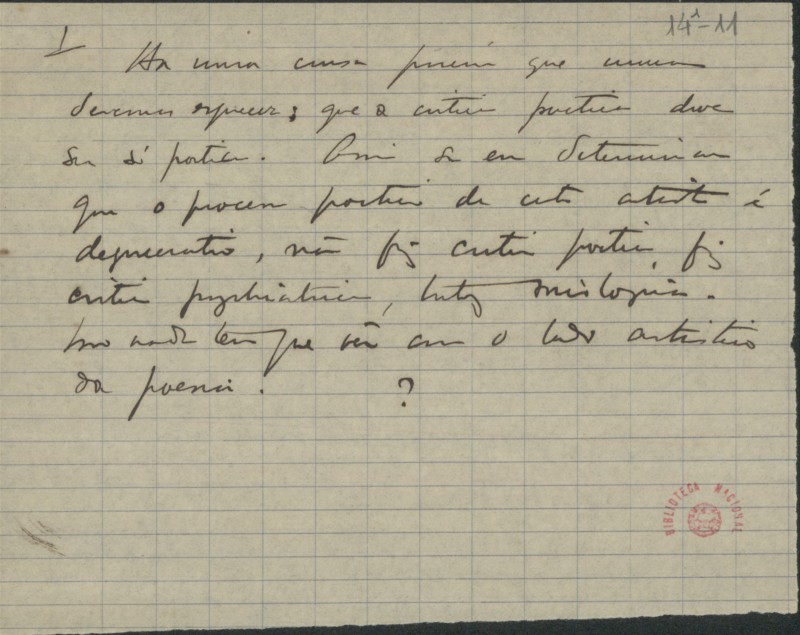 14¹-11
1
Ha uma cousa porém que nunca
devemos esquecer; que a critica poetica deve
ser só poetica. Assim se eu determinar
que o processo poetico de certo artista é
degenerativo, não fiz critica poetica, fiz
critica psychiatrica, talvez sociologica.
Isso nada tem que vêr com o lado artistico
da poesia. ?
BIBLIOTECA NACIONAL